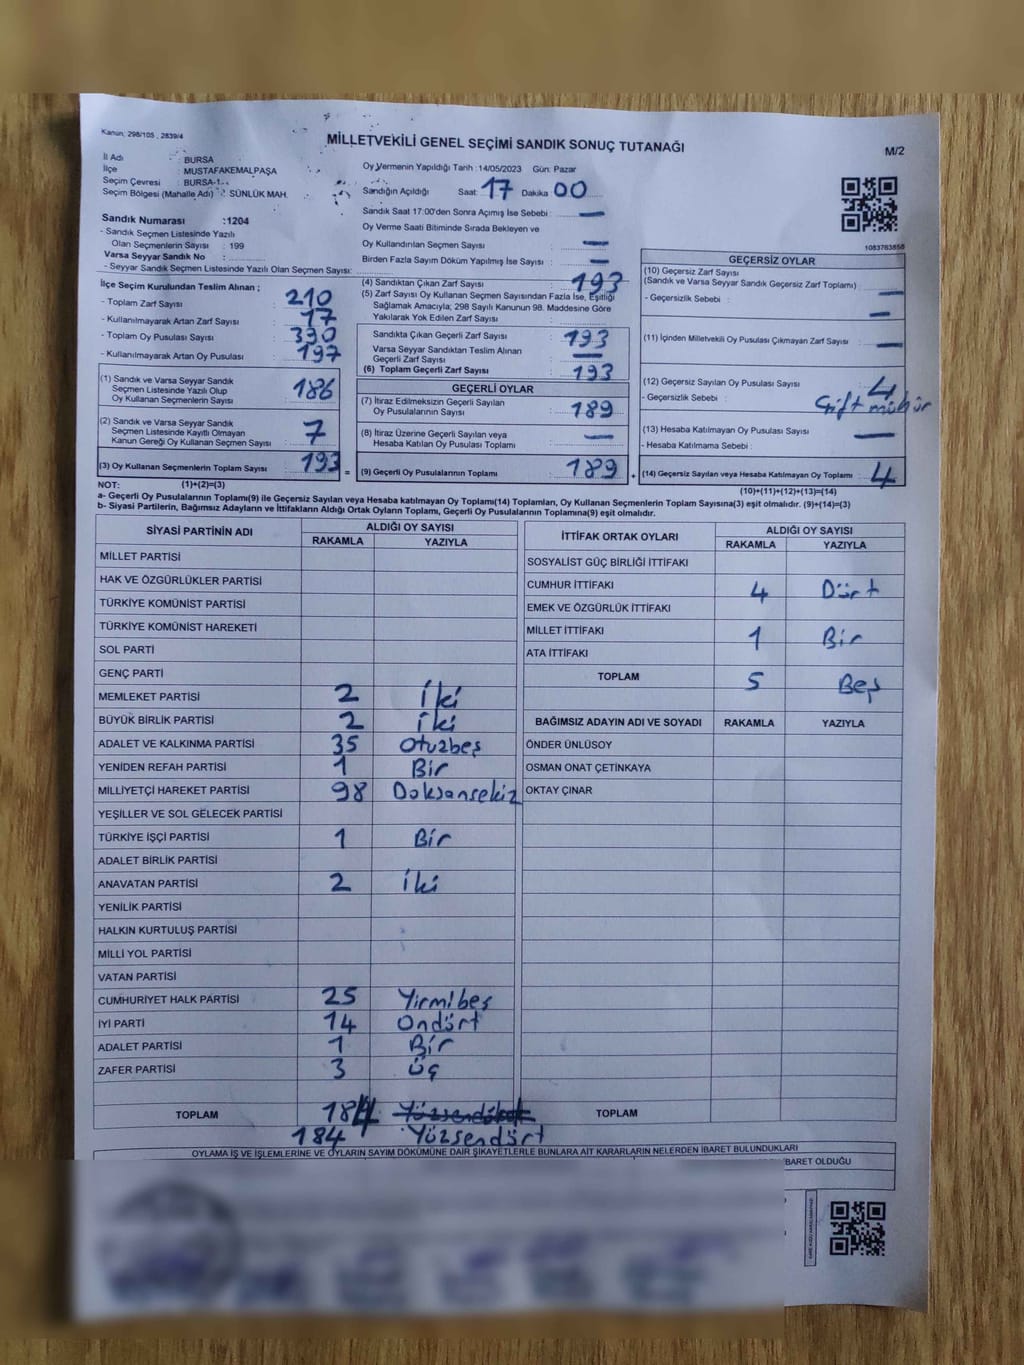 Kanun, 298/105 , 2839/4
MİLLETVEKİLİ GENEL SEÇİMİ SANDIK SONUÇ TUTANAĞI
M/2
İl Adı : BURSA
İlçe : MUSTAFAKEMALPAŞA
Seçim Çevresi : BURSA-1
Seçim Bölgesi (Mahalle Adı) : SÜNLÜK MAH.
Oy Vermenin Yapıldığı Tarih : 14/05/2023 Gün: Pazar
Sandığın Açıldığı Saat: 17 Dakika 00
Sandık Saat 17:00'den Sonra Açımış İse Sebebi : —
Oy Verme Saati Bitiminde Sırada Bekleyen ve
Oy Kullandırılan Seçmen Sayısı : —
Birden Fazla Sayım Döküm Yapılmış İse Sayısı : —
1083783858
Sandık Numarası :1204
- Sandık Seçmen Listesinde Yazılı
Olan Seçmenlerin Sayısı : 199
Varsa Seyyar Sandık No :
- Seyyar Sandık Seçmen Listesinde Yazılı Olan Seçmen Sayısı:
İlçe Seçim Kurulundan Teslim Alınan ;
- Toplam Zarf Sayısı : 210
- Kullanılmayarak Artan Zarf Sayısı : 17
- Toplam Oy Pusulası Sayısı : 390
- Kullanılmayarak Artan Oy Pusulası : 197
(1) Sandık ve Varsa Seyyar Sandık
Seçmen Listesinde Yazılı Olup
Oy Kullanan Seçmenlerin Sayısı : 186
(2) Sandık ve Varsa Seyyar Sandık
Seçmen Listesinde Kayıtlı Olmayan
Kanun Gereği Oy Kullanan Seçmen Sayısı : 7
(3) Oy Kullanan Seçmenlerin Toplam Sayısı : 193 =
(4) Sandıktan Çıkan Zarf Sayısı : 193
(5) Zarf Sayısı Oy Kullanan Seçmen Sayısından Fazla İse, Eşitliği
Sağlamak Amacıyla; 298 Sayılı Kanunun 98. Maddesine Göre
Yakılarak Yok Edilen Zarf Sayısı :
Sandıkta Çıkan Geçerli Zarf Sayısı : 193
Varsa Seyyar Sandıktan Teslim Alınan
Geçerli Zarf Sayısı : —
(6) Toplam Geçerli Zarf Sayısı : 193
GEÇERLİ OYLAR
(7) İtiraz Edilmeksizin Geçerli Sayılan
Oy Pusulalarının Sayısı : 189
(8) İtiraz Üzerine Geçerli Sayılan veya
Hesaba Katılan Oy Pusulası Toplamı : —
(9) Geçerli Oy Pusulalarının Toplamı : 189 +
GEÇERSİZ OYLAR
(10) Geçersiz Zarf Sayısı
(Sandık ve Varsa Seyyar Sandık Geçersiz Zarf Toplamı) : —
- Geçersizlik Sebebi : —
(11) İçinden Milletvekili Oy Pusulası Çıkmayan Zarf Sayısı : —
(12) Geçersiz Sayılan Oy Pusulası Sayısı : 4
- Geçersizlik Sebebi : Çift mühür
(13) Hesaba Katılmayan Oy Pusulası Sayısı : —
- Hesaba Katılmama Sebebi :
(14) Geçersiz Sayılan veya Hesaba Katılmayan Oy Toplamı : 4
NOT: (1)+(2)=(3)
(10)+(11)+(12)+(13)=(14)
a- Geçerli Oy Pusulalarının Toplamı(9) ile Geçersiz Sayılan veya Hesaba katılmayan Oy Toplamı(14) Toplamları, Oy Kullanan Seçmenlerin Toplam Sayısına(3) eşit olmalıdır. (9)+(14)=(3)
b- Siyasi Partilerin, Bağımsız Adayların ve İttifakların Aldığı Ortak Oyların Toplamı, Geçerli Oy Pusulalarının Toplamına(9) eşit olmalıdır.
SİYASİ PARTİNİN ADI ALDIĞI OY SAYISI
RAKAMLA YAZIYLA
MİLLET PARTİSİ
HAK VE ÖZGÜRLÜKLER PARTİSİ
TÜRKİYE KOMÜNİST PARTİSİ
TÜRKİYE KOMÜNİST HAREKETİ
SOL PARTİ
GENÇ PARTİ
MEMLEKET PARTİSİ 2 İki
BÜYÜK BİRLİK PARTİSİ 2 İki
ADALET VE KALKINMA PARTİSİ 35 Otuzbeş
YENİDEN REFAH PARTİSİ 1 Bir
MİLLİYETÇİ HAREKET PARTİSİ 98 Doksansekiz
YEŞİLLER VE SOL GELECEK PARTİSİ
TÜRKİYE İŞÇİ PARTİSİ 1 Bir
ADALET BİRLİK PARTİSİ
ANAVATAN PARTİSİ 2 İki
YENİLİK PARTİSİ
HALKIN KURTULUŞ PARTİSİ
MİLLİ YOL PARTİSİ
VATAN PARTİSİ
CUMHURİYET HALK PARTİSİ 25 Yirmibeş
İYİ PARTİ 14 Ondört
ADALET PARTİSİ 1 Bir
ZAFER PARTİSİ 3 Üç
TOPLAM 184
184 Yüzsendört
İTTİFAK ORTAK OYLARI ALDIĞI OY SAYISI
RAKAMLA YAZIYLA
SOSYALİST GÜÇ BİRLİĞİ İTTİFAKI
CUMHUR İTTİFAKI 4 Dört
EMEK VE ÖZGÜRLÜK İTTİFAKI
MİLLET İTTİFAKI 1 Bir
ATA İTTİFAKI
TOPLAM 5 Beş
BAĞIMSIZ ADAYIN ADI VE SOYADI RAKAMLA YAZIYLA
ÖNDER ÜNLÜSOY
OSMAN ONAT ÇETİNKAYA
OKTAY ÇINAR
TOPLAM
OYLAMA İŞ VE İŞLEMLERİNE VE OYLARIN SAYIM DÖKÜMÜNE DAİR ŞİKAYETLERLE BUNLARA AİT KARARLARIN NELERDEN İBARET BULUNDUKLARI
BARET OLDUĞU